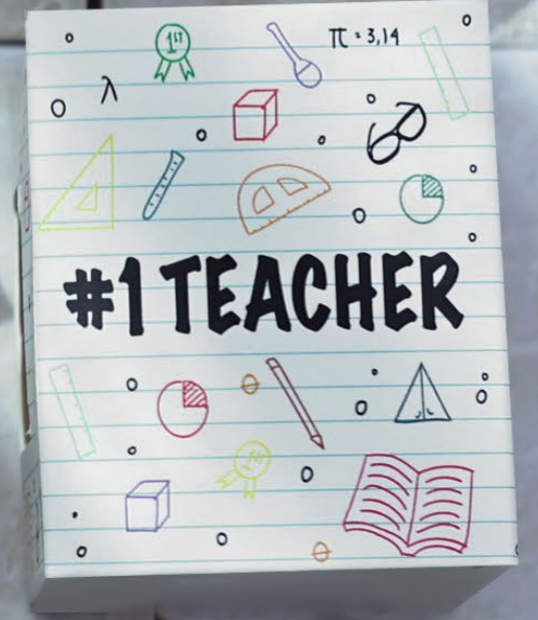 1ST
π = 3,14
λ
#1 TEACHER
1ST